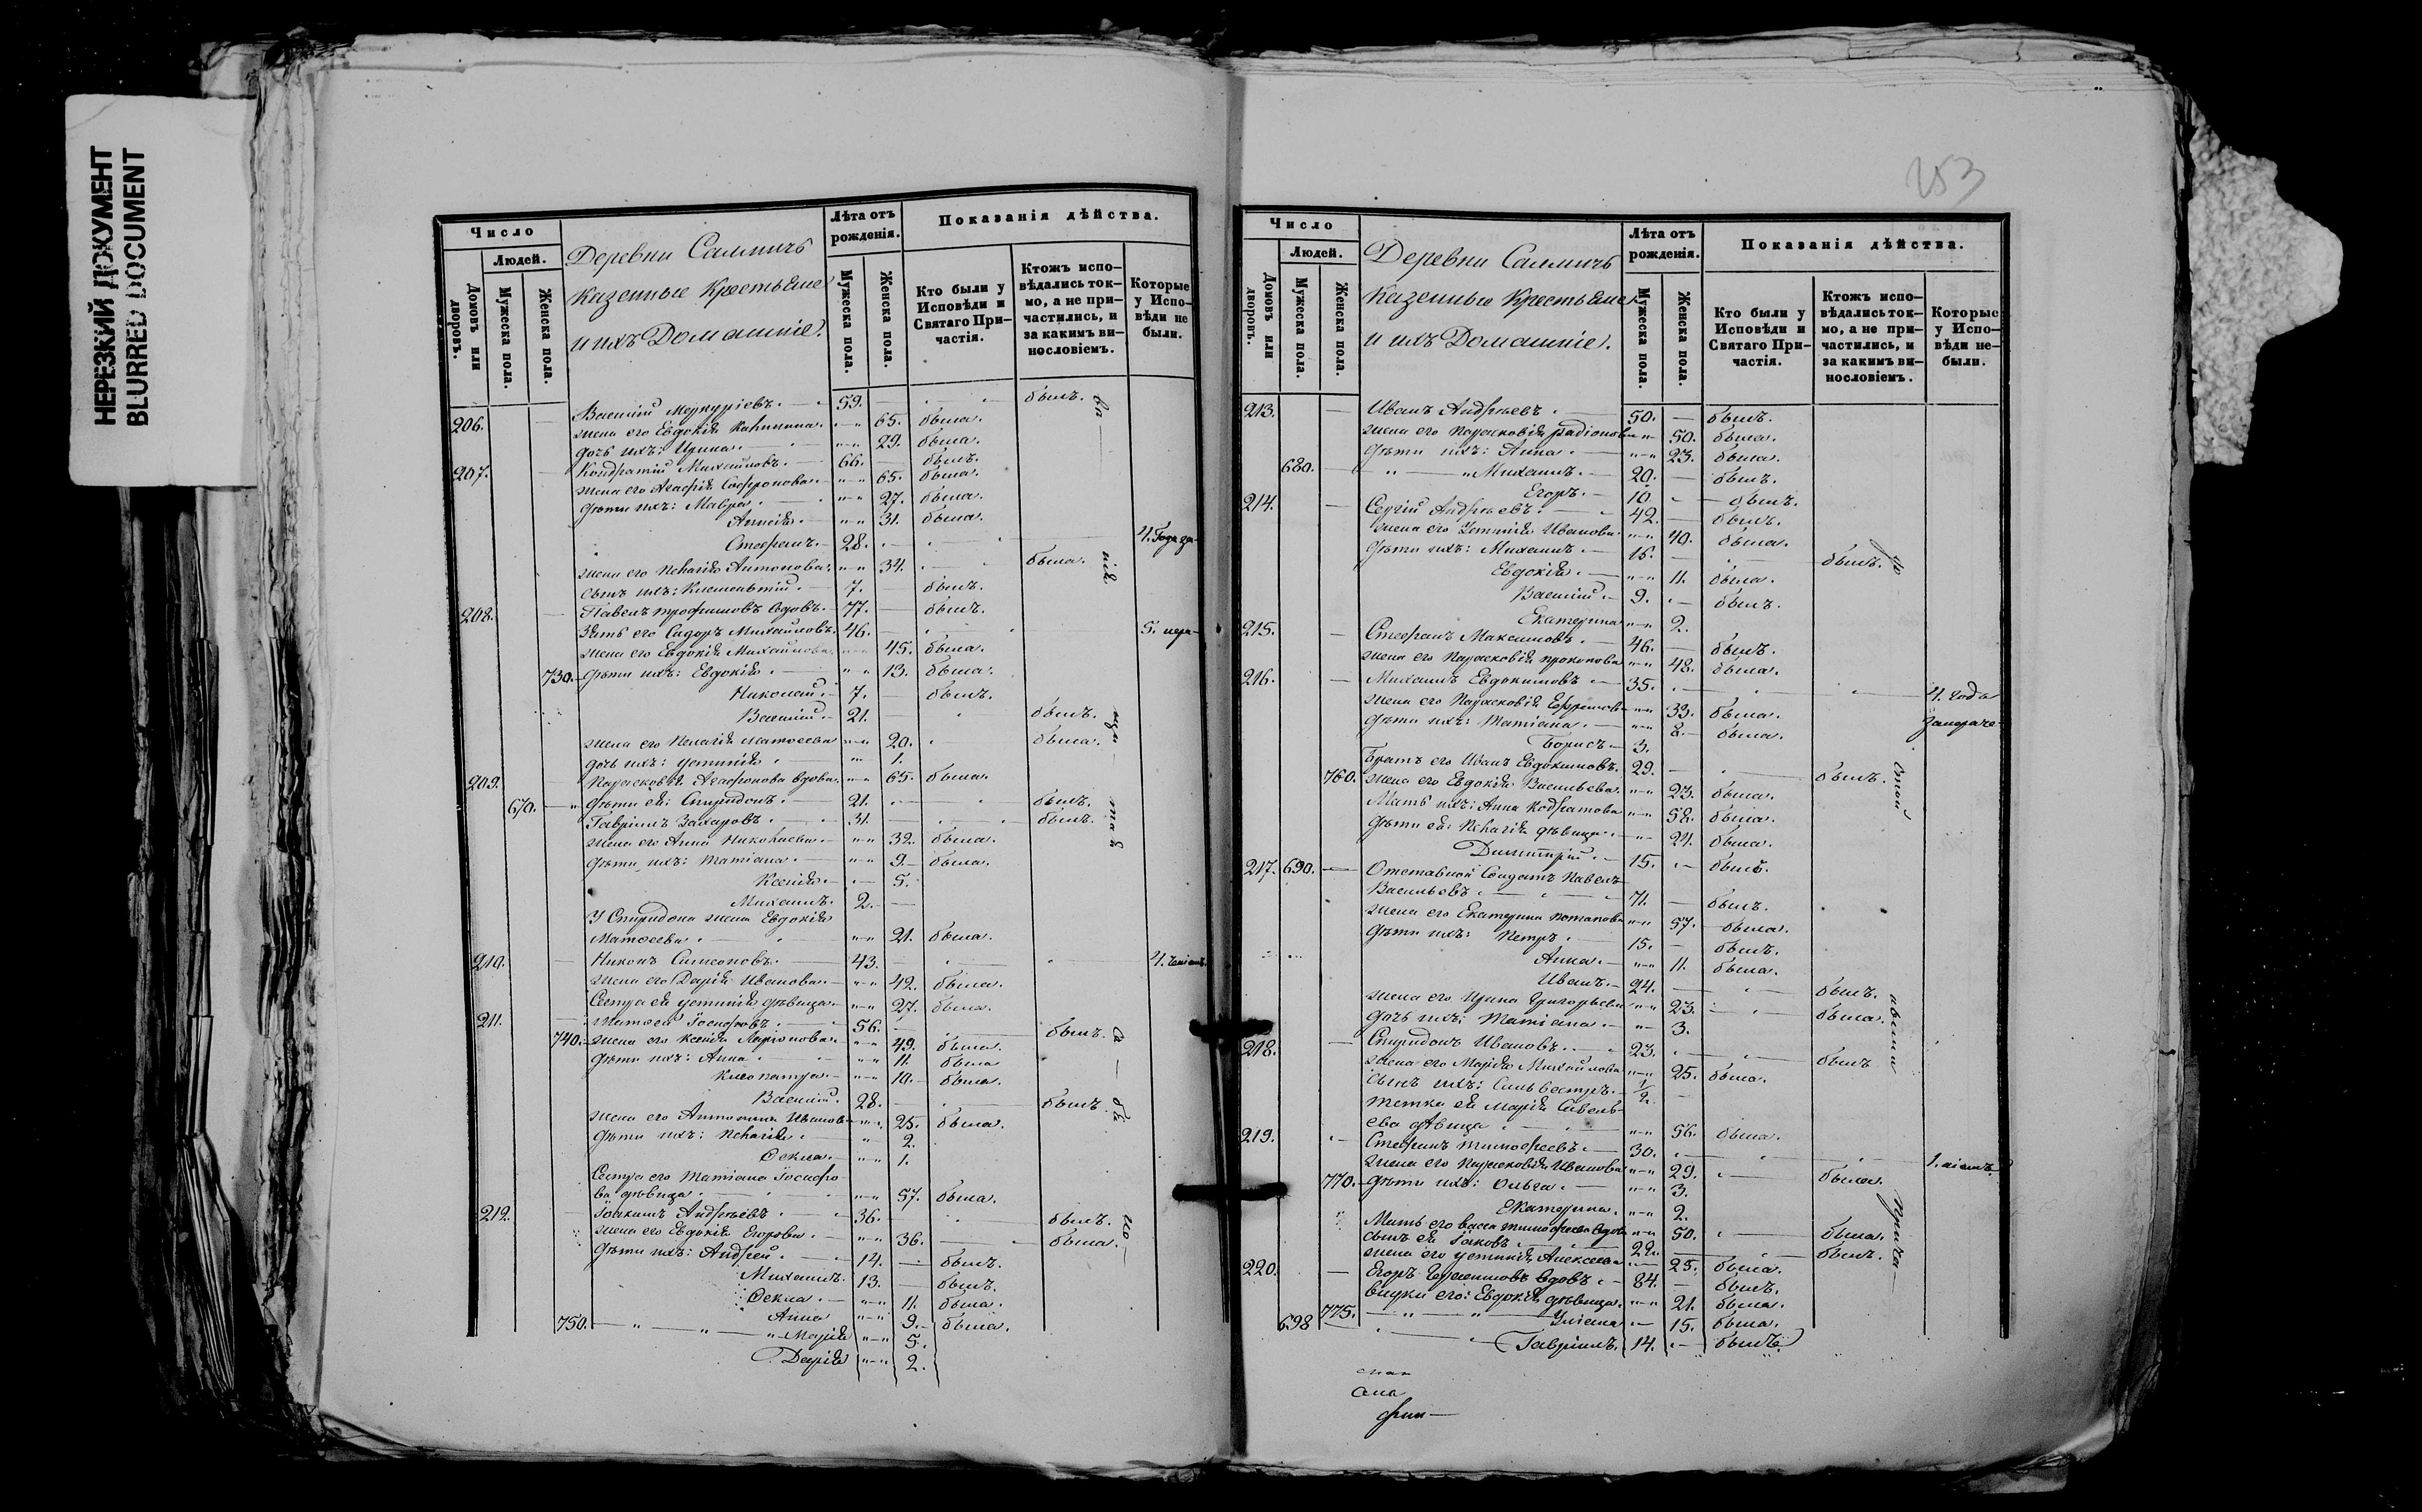 НЕРЕЗКИЙ ДОКУМЕНТ
BLURRED DOCUMENT
Число
Людей.
Домовъ или дворовъ.
Мужеска пола.
Женска пола.
Деревни
казенные Крестьяне
и ихъ Домашніе.
Лѣта отъ рожденія.
Мужеска пола.
Женска пола.
Показанія дѣйства.
Кто были у Исповѣди и Святаго Причастія.
Ктожъ исповѣдались токмо, а не причастились, и за какимъ винословіемъ.
Которые у Исповѣди не были.
206. Василій Меркуріевъ. 59. былъ.
жена его Евдокія 65. была.
дочь ихъ: Ирина. 29. была.
207. Кондратій Михайловъ. 66. былъ.
жена его Агафія Софронова. 65. была.
дѣти ихъ: Мавра. 27. была.
31. была.
Стефанъ. 28.
жена его Пелагія Антонова. 34. была.
сынъ ихъ: 7. былъ.
208. Павелъ Трофимовъ вдовъ. 77. былъ.
Зять его Сидоръ Михайловъ. 46.
жена его Евдокія Михайлова. 45. была.
730. дѣти ихъ: Евдокія. 13. была.
Николай. 7. былъ.
Василій. 21. былъ.
жена его Пелагія Матвеева 20. была.
дочь ихъ: Устинія 1.
209. Параскевія Агафонова вдова. 65. была.
670. дѣти ея: Спиридонъ. 21. былъ.
Гавріилъ Захаровъ. 31. былъ.
жена его Анна Николаева. 32. была.
дѣти ихъ: Татіана. 9. была.
Ксенія. 5.
Михаилъ. 2.
У Спиридона жена Евдокія
Матѳеева. 21. была.
210. Никонъ Симеоновъ. 43.
жена его Дарія Иванова. 42. была.
Сестра ея Устинія дѣвица. 27. была.
211. Матѳей Іосифовъ. 56. былъ.
740. жена его Ксенія Ларіонова. 49. была.
дѣти ихъ: Анна. 11. была
Клеопатра. 10. была.
Василій. 28. былъ.
жена его Антонина Иванова 25. была.
дѣти ихъ: Пелагія. 2.
Ѳекла. 1.
Сестра его Татіана Іосифо-
ва дѣвица. 57. была.
212. Іоакимъ Андреевъ. 36. былъ.
жена его Евдокія Егорова. 36. была.
дѣти ихъ: Андрей. 14. былъ.
Михаилъ. 13. былъ.
Ѳекла. 11. была.
Анна 9. была.
750. Марія 5.
Дарія 2.
253
Число
Людей.
Домовъ или дворовъ.
Мужеска пола.
Женска пола.
Деревни
казенные Крестьяне
и ихъ Домашніе.
Лѣта отъ рожденія.
Мужеска пола.
Женска пола.
Показанія дѣйства.
Кто были у Исповѣди и Святаго Причастія.
Ктожъ исповѣдались токмо, а не причастились, и за какимъ винословіемъ.
Которые у Исповѣди небыли.
213. Иванъ Андреевъ. 50. былъ.
жена его Параскевія Радіонова 50. была.
дѣти ихъ: Анна. 23. была.
680. Михаилъ. 20. былъ.
Егоръ. 10. былъ.
214. Сергій Андреевъ. 42. былъ.
жена его Устинія Иванова. 40. была.
дѣти ихъ: Михаилъ. 16. былъ.
Евдокія. 11. была.
Василій. 9. былъ.
Екатерина 2.
215. Стефанъ Максимовъ. 46. былъ.
жена его Параскевія Прокопова 48. была.
216. Михаилъ Евдокимовъ. 35. 4. года
жена его Параскевія Ефремова 33. была.
дѣти ихъ: Татіана. 8. была.
Борисъ. 3.
Братъ его Иванъ Евдокимовъ. 29. былъ.
760. жена его Евдокія Васильева. 23. была.
Мать ихъ: Анна Кодратова 58. была.
дѣти ея: Пелагія дѣвица. 24. была.
Димитрій. 15. былъ.
217. 690. Отставной Солдатъ Павелъ
Васильевъ. 71. былъ.
жена его Екатерина Потапова 57. была.
дѣти ихъ: Петръ. 15. былъ.
Анна. 11. была.
Иванъ. 24. былъ.
жена его Ирина Григорьева 23. была.
дочь ихъ: Татіана. 3.
218. Спиридонъ Ивановъ. 23. былъ
жена его Марія Михайлова 25. была.
сынъ ихъ: Сильвестръ. 1/2
тетка ея Марія Савель-
ева дѣвица 56. была.
219. Стефанъ Тимофеевъ. 30.
жена его Параскевія Иванова 29. была.
770. дѣти ихъ: Ольга. 3.
Екатерина. 2.
Мать его Васса Тимофеева вдова 50. была.
сынъ ея Іаковъ 22. былъ.
жена его Устинія Алексеева 25. была.
220. Егоръ вдовъ. 84. былъ.
внуки его: Евдокія дѣвица. 21. была.
775. Уліана 15. была.
698 Гавріилъ. 14. былъ